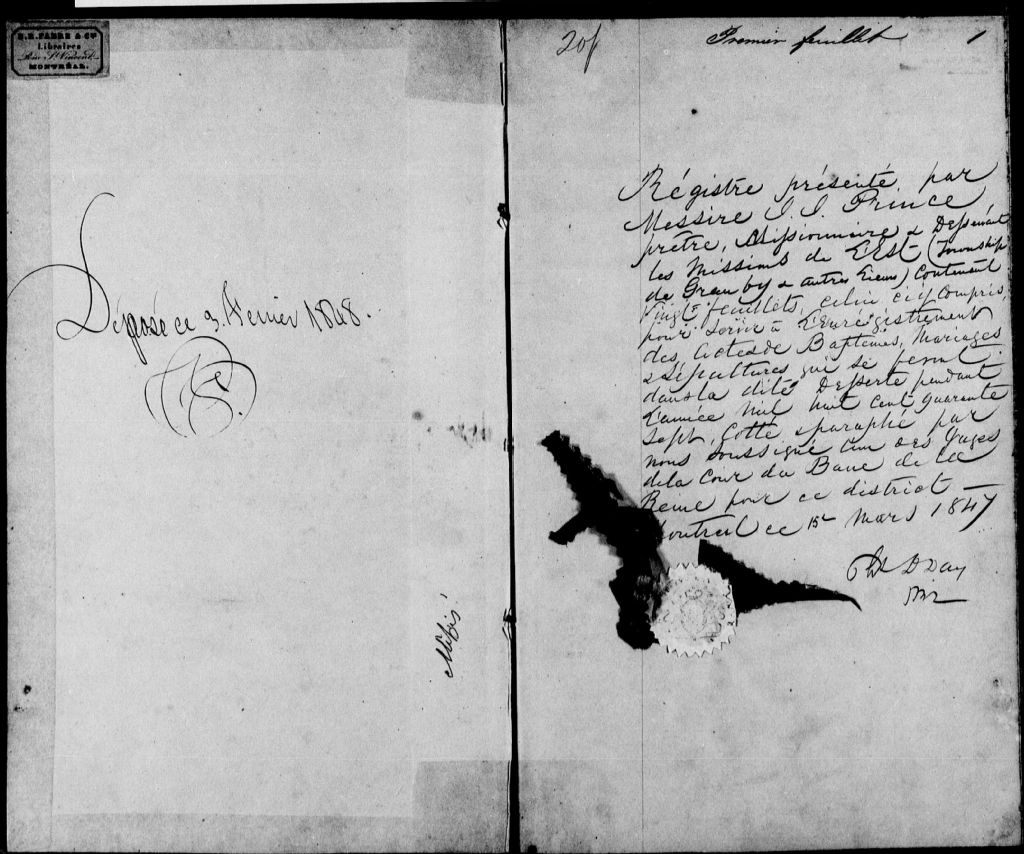 E. R. FABRE & Cie
Libraires
Rue St Vincent
MONTRÉAL.
Déposé ce 3. Fevrier 1848.
20f
Premier feuillet 1
Régistre présenté par
Messire J. J. Prince,
prêtre, Missionnaire & Desservant
les missions de L'Est (Township
de Granby & autres Lieux) Contenant
Vingt feuillets, celui ci y Compris,
pour servir à L'Enrégistrement
des Actes de Baptêmes, Mariages
& Sépultures qui se feront
dans la dite Desserte pendant
L'année Mil huit Cent quarante
Sept, Cotté & paraphé par
nous soussigné L'un des Juges
de la Cour du Banc de la
Reine pour ce district —
Montreal ce 15 Mars 1847
D Day